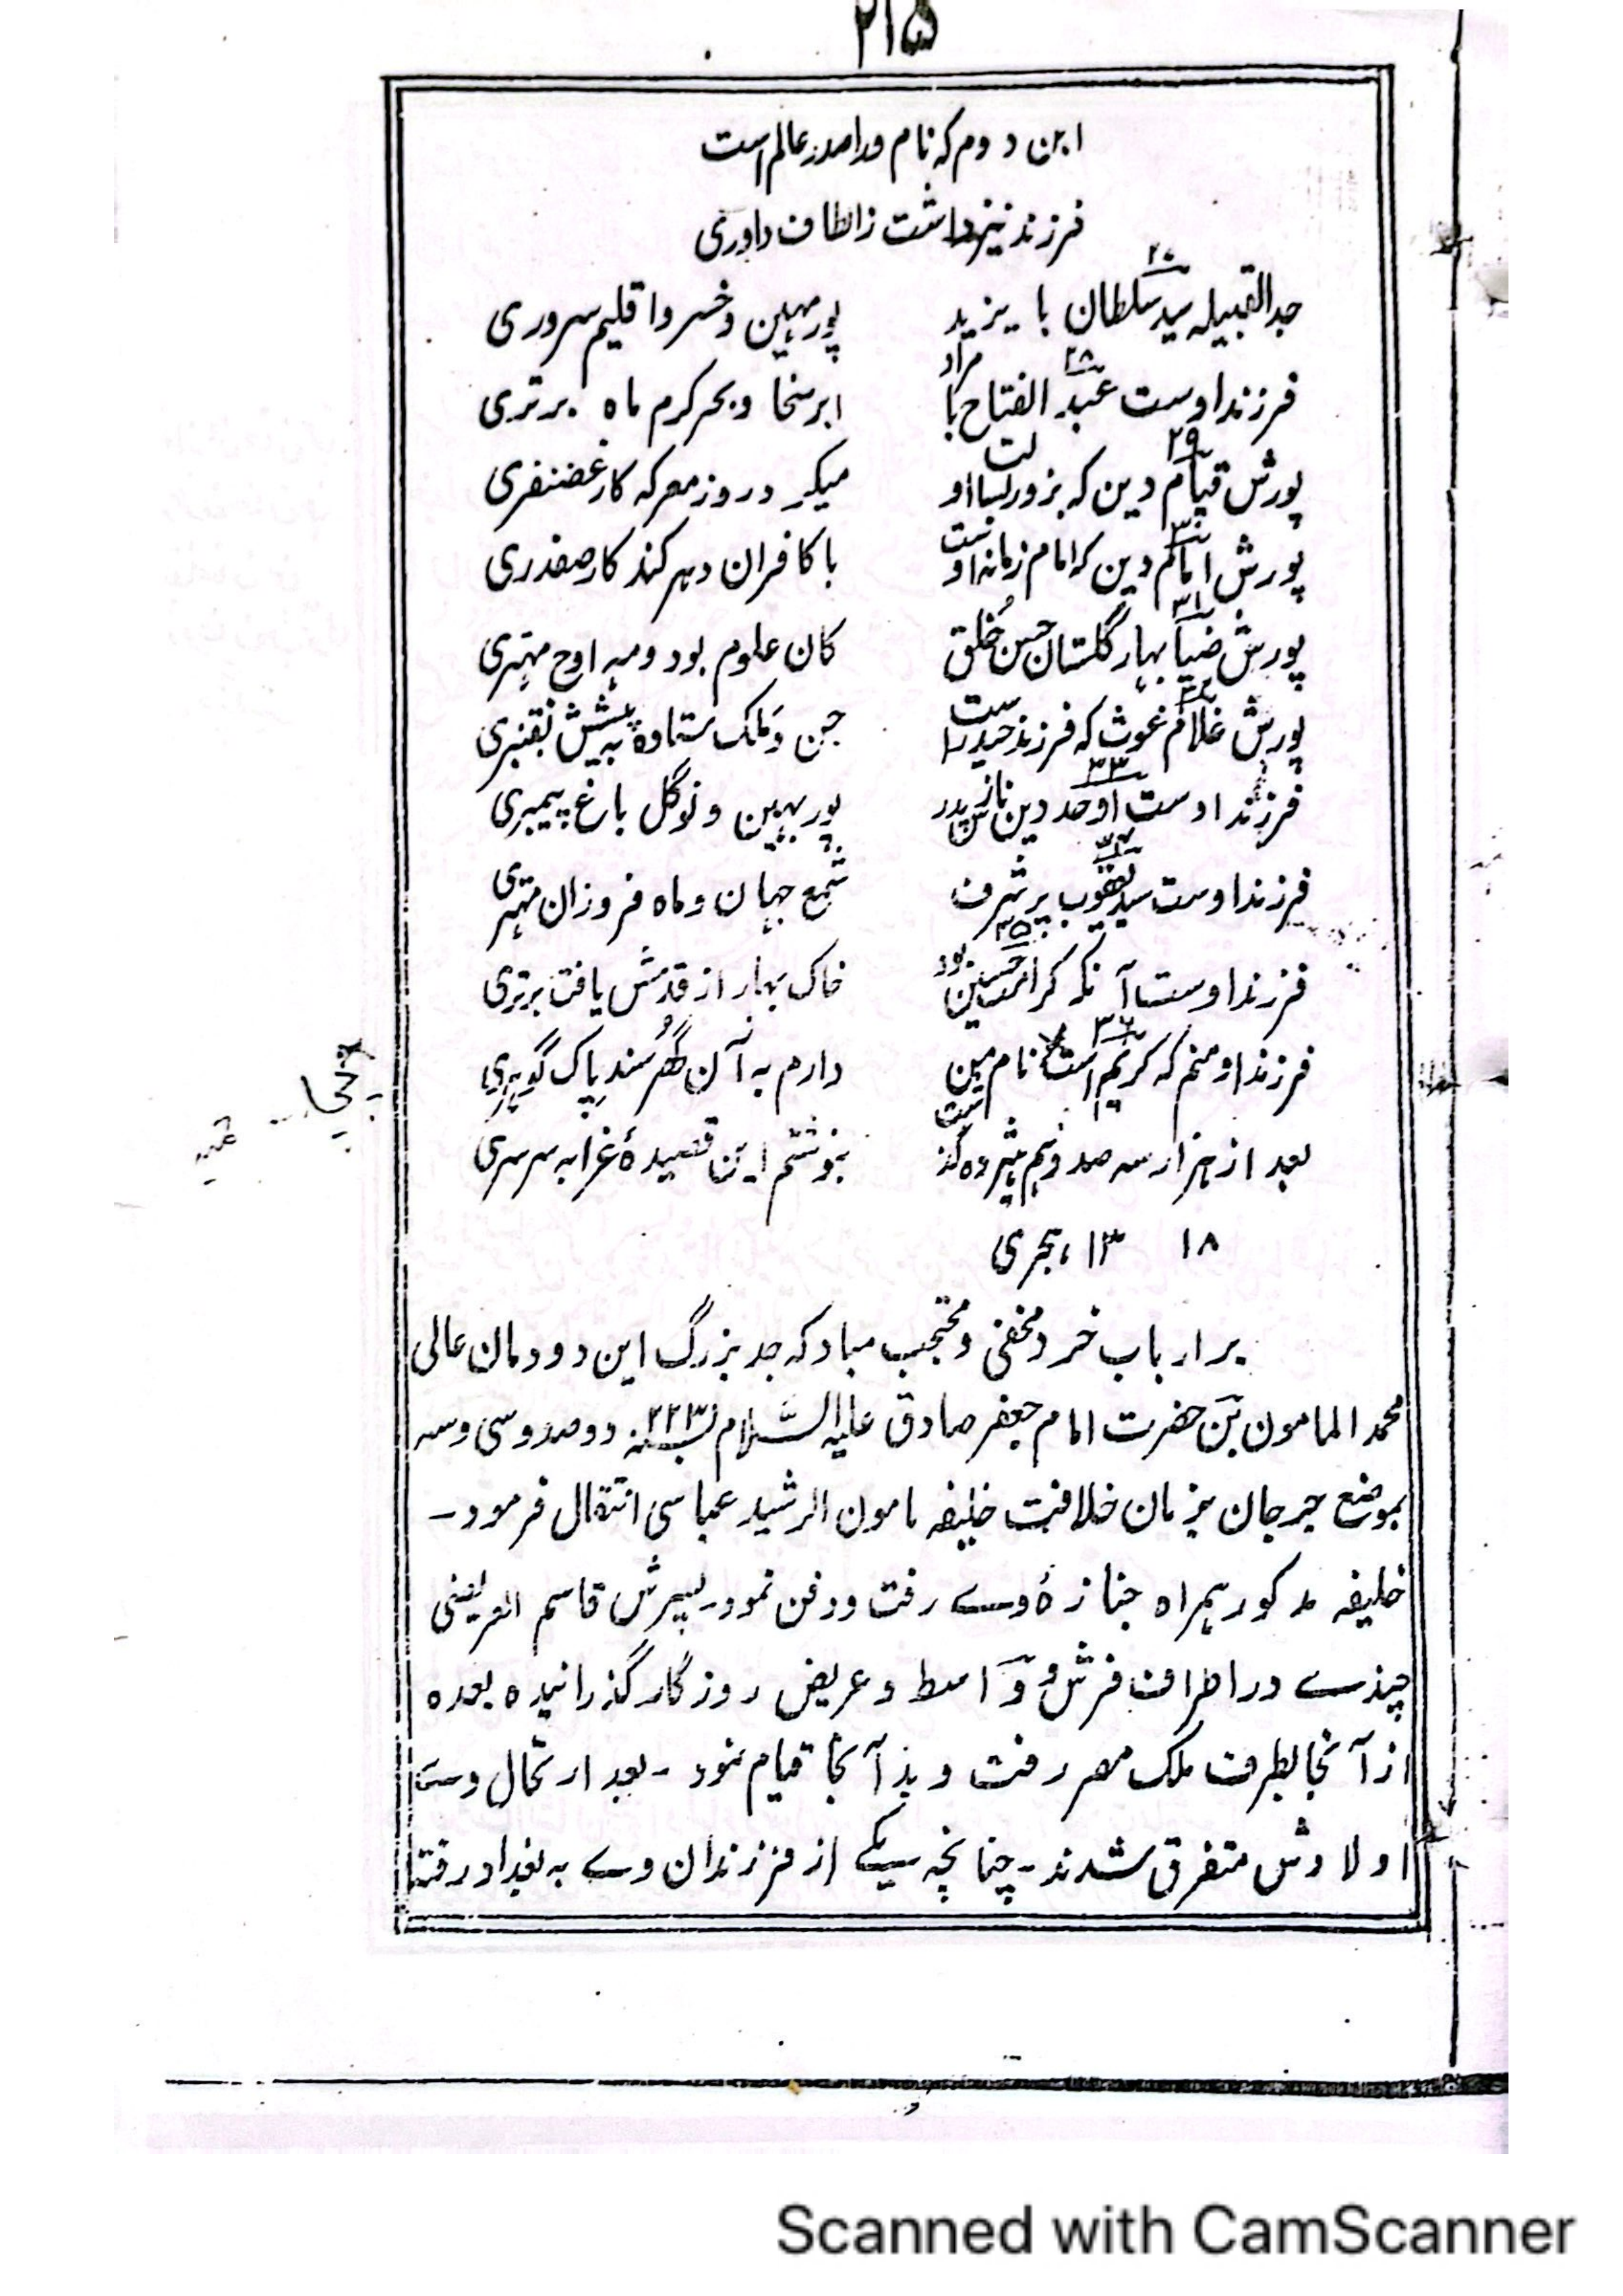 ۲۱۵
ابن دوم که نام ورا صدر عالم است
فرزند نیز داشت ز الطاف داوری
جد القبیله سید سلطان با یزید پور مهین و خسرو اقلیم سروری
فرزند اوست عبد الفتاح با مراد ابر سخا و بحر کرم ماه برتری
۲۸
پورش قیام دین که بزور بسالت او میکرد روز معرکه کار غضنفری
۲۹
پورش امام دین که امام زمانه اوست با کافران دهر کند کار صفدری
۳۰
پورش ضیا بهار گلستان حسن خُلق کان علوم بود و مه اوج مهتری
۳۱
پورش غلام غوث که فرزند حیدر است جن و مَلک ستاده به پیشش بقنبری
۳۲
فرزند اوست اوحد دین نازش پدر پور بهین و نوگل باغ پیمبری
۳۳
فرزند اوست سید یعقوب پر شرف شمع جهان و ماه فروزان مهتری
۳۴
فرزند اوست آنکه کرامت حسین بود خاک بهار از قدمش یافت برتری
۳۵
فرزند او منم که کریم است نام من دارم به آن گُهر سند پاک گوهری
۳۶
بعد از هزار سه صد و هم هژده گذشت بنوشتم این قصیدهٔ غرا به سرسری
۱۸ ۱۳ هجری
بر ارباب خرد مخفی و محتجب مباد که جد بزرگ این دودمان عالی
محمد المامون بن حضرت امام جعفر صادق علیه السَّلام بسنه ۲۲۳ دو صد و سی و سه
بموضع جرجان بزمان خلافت خلیفه مامون الرشید عباسی انتقال فرمود۔
خلیفه مذکور همراه جنازهٔ وے رفت و دفن نمود۔ پسرش قاسم العریضی
چندے در اطراف فرش و واسط و عریض روزگار گذرانیده بعده
از آنجا بطرف ملک مصر رفت و بدآنجا قیام نمود۔ بعد ارتحال وے
اولادش متفرق شدند۔ چنانچه یکے از فرزندان وے به بغداد رفت
Scanned with CamScanner